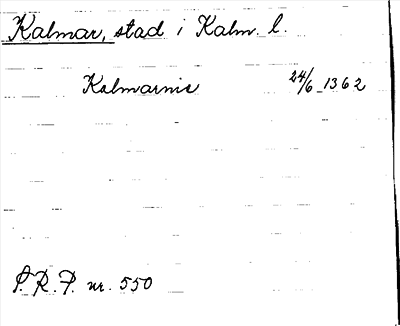 Kalmar, stad i Kalm. l.
Kalmarnie 24/6 1362
S.R.P. nr. 550